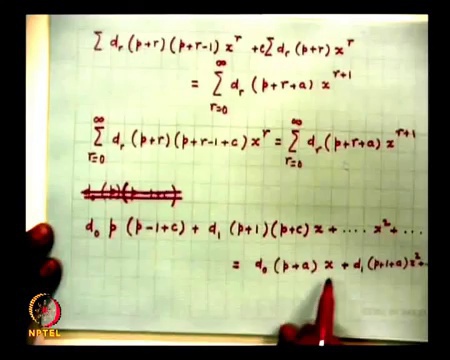 ∑ d_r (p+r)(p+r-1) x^r + c∑ d_r (p+r) x^r
= ∑_{r=0}^{∞} d_r (p+r+a) x^{r+1}
∑_{r=0}^{∞} d_r (p+r)(p+r-1+c) x^r = ∑_{r=0}^{∞} d_r (p+r+a) x^{r+1}
d_0 p (p-1+c) + d_1 (p+1)(p+c) x + ···· x^2 + ···
= d_0 (p+a) x + d_1 (p+1+a) x^2 + ··
NPTEL